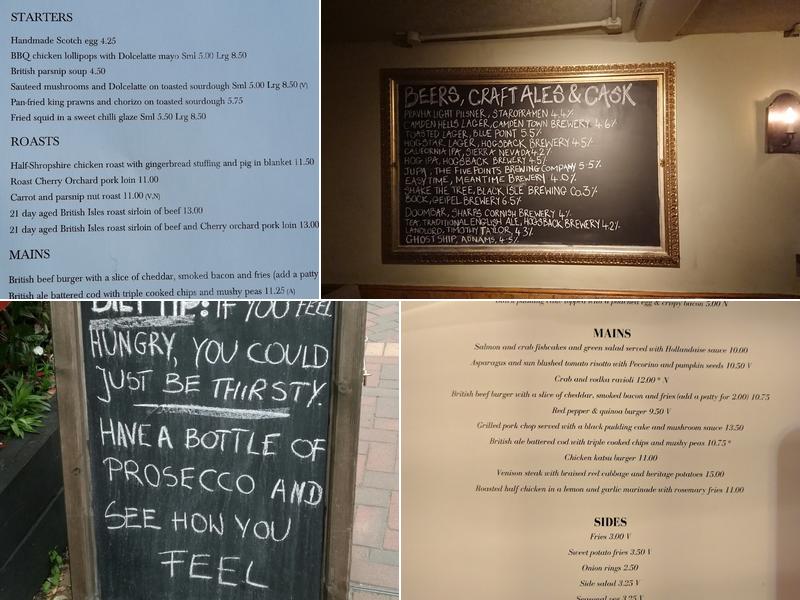 STARTERS
Handmade Scotch egg 4.25
BBQ chicken lollipops with Dolcelatte mayo Sml 5.00 Lrg 8.50
British parsnip soup 4.50
Sauteed mushrooms and Dolcelatte on toasted sourdough Sml 5.00 Lrg 8.50 (V)
Pan-fried king prawns and chorizo on toasted sourdough 5.75
Fried squid in a sweet chilli glaze Sml 5.50 Lrg 8.50
ROASTS
Half-Shropshire chicken roast with gingerbread stuffing and pig in blanket 11.50
Roast Cherry Orchard pork loin 11.00
Carrot and parsnip nut roast 11.00 (V,N)
21 day aged British Isles roast sirloin of beef 13.00
21 day aged British Isles roast sirloin of beef and Cherry orchard pork loin 13.00
MAINS
British beef burger with a slice of cheddar, smoked bacon and fries (add a patty
British ale battered cod with triple cooked chips and mushy peas 11.25 (A)
BEERS, CRAFT ALES & CASK
PRAVHA LIGHT PILSNER, STAROPRAMEN 4.4%
CAMDEN HELLS LAGER, CAMDEN TOWN BREWERY 4.6%
TOASTED LAGER, BLUE POINT 5.5%
HOGSTAR LAGER, HOGSBACK BREWERY 4.5%
CALIFORNIA IPA, SIERRA NEVADA 4.2%
HOG IPA, HOGSBACK BREWERY 4.5%
JUPA, THE FIVE POINTS BREWING COMPANY 5.5%
EASY TIME, MEANTIME BREWERY 4.0%
SHAKE THE TREE, BLACK ISLE BREWING Co. 3%
BOCK, GEIPEL BREWERY 6.5%
DOOMBAR, SHARPS CORNISH BREWERY 4%
TEA, TRADITIONAL ENGLISH ALE, HOGSBACK BREWERY 4.2%
LANDLORD, TIMOTHY TAYLOR, 4.3%
GHOST SHIP, ADNAMS, 4.5%
DIET TIP: IF YOU FEEL
HUNGRY, YOU COULD
JUST BE THIRSTY.
HAVE A BOTTLE OF
PROSECCO AND
SEE HOW YOU
FEEL
pudding cake topped with a poached egg & crispy bacon 5.00 N
MAINS
Salmon and crab fishcakes and green salad served with Hollandaise sauce 10.00
Asparagus and sun blushed tomato risotto with Pecorino and pumpkin seeds 10.50 V
Crab and vodka ravioli 12.00 * N
British beef burger with a slice of cheddar, smoked bacon and fries (add a patty for 2.00) 10.75
Red pepper & quinoa burger 9.50 V
Grilled pork chop served with a black pudding cake and mushroom sauce 13.50
British ale battered cod with triple cooked chips and mushy peas 10.75 *
Chicken katsu burger 11.00
Venison steak with braised red cabbage and heritage potatoes 15.00
Roasted half chicken in a lemon and garlic marinade with rosemary fries 11.00
SIDES
Fries 3.00 V
Sweet potato fries 3.50 V
Onion rings 2.50
Side salad 3.25 V
Seasonal veg 3.25 V